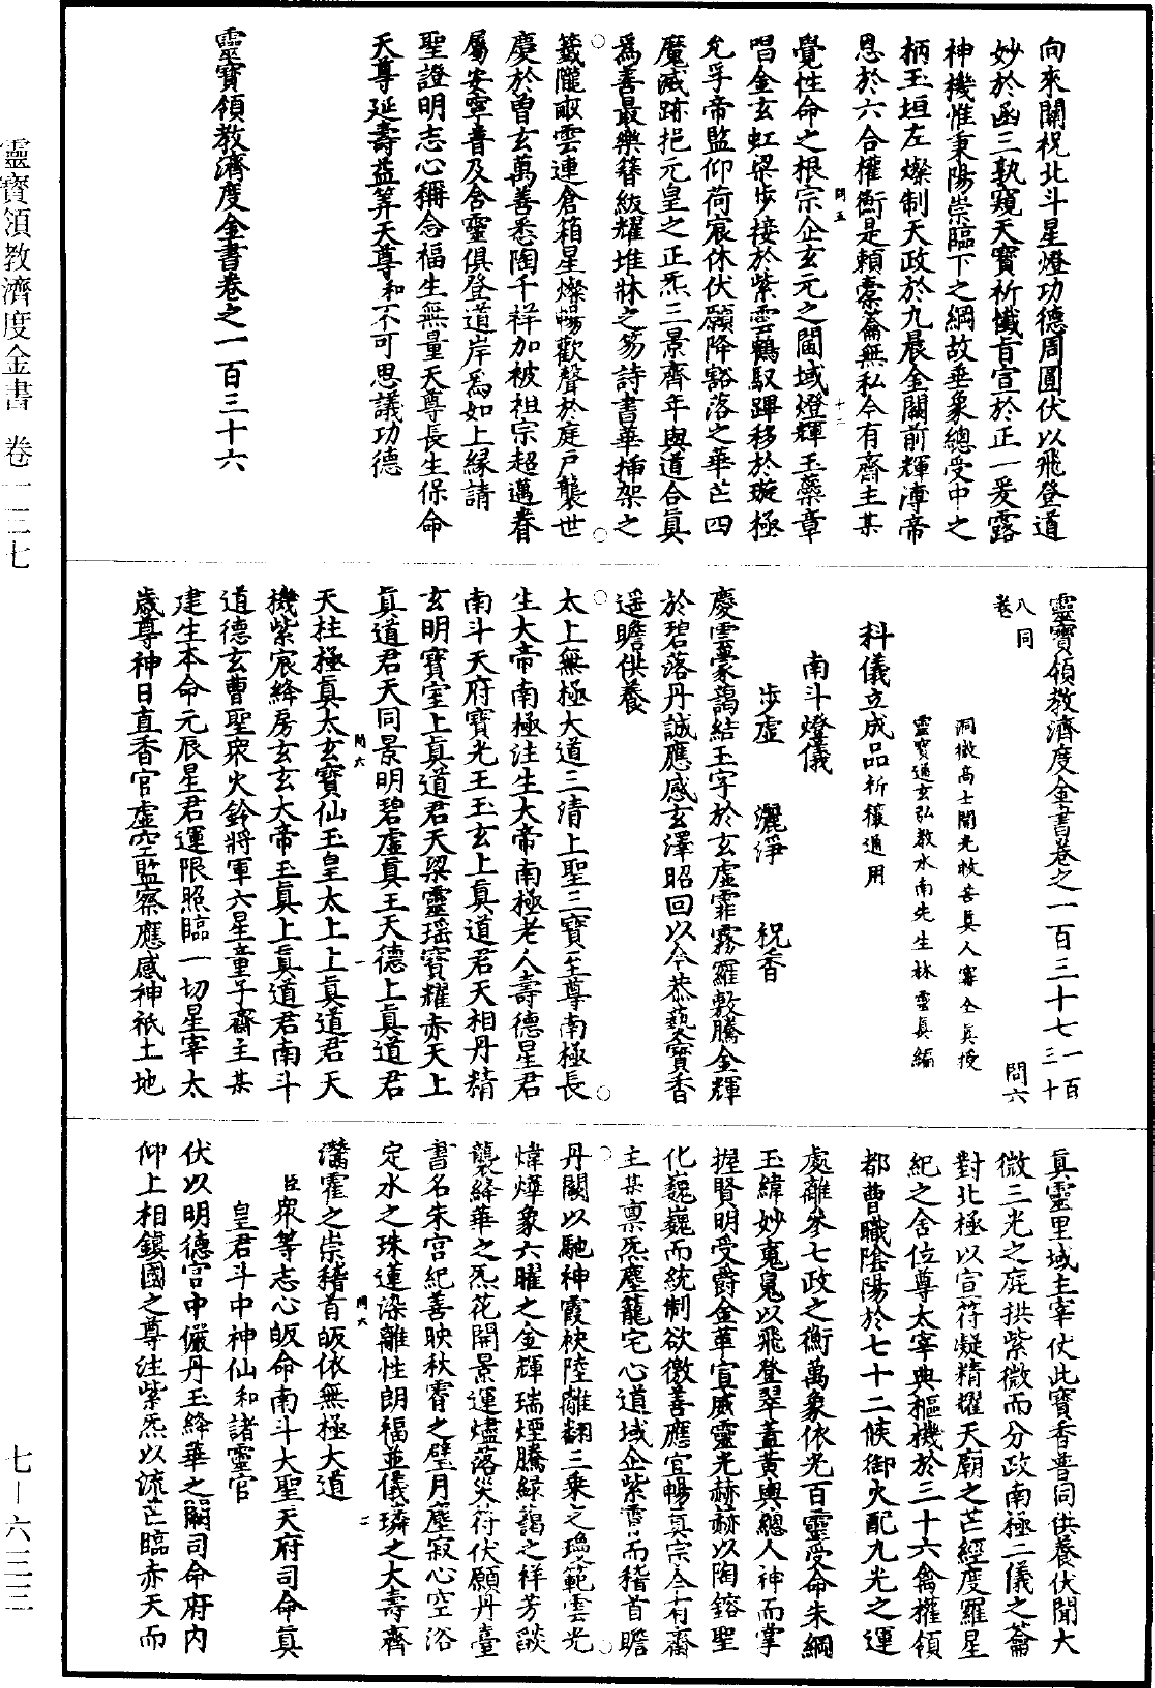 向來關祝北斗星燈功德周圓伏以飛登道
妙於函三孰窺天寳祈懺旨宣於正一爰露
神機惟秉陽崇臨下之綱故垂象總受中之
柄玉垣左燦制天政於九晨金闕前輝溥帝
恩於六合權衡是賴橐籥無私今有齋主某
覺性命之根宗企玄元之閫域燈輝玉藥章
唱金玄虹梁步接於紫雲鶴馭蹕移於璇極
允孚帝監仰荷宸休伏願降豁落之華芒四
魔滅跡挹元皇之正炁三景齊年與道合真
爲善最樂簪紱耀堆牀之笏詩書華揷架之
籤隴畝雲連倉箱星燦暢歡聲於庭戸襲世
慶於曽玄萬善悉陶千祥加被祖宗超邁眷
屬安寧普及含靈俱登道岸爲如上縁請
聖證明志心稱念福生無量天尊長生保命
天尊延壽益筭天尊和不可思議功德
靈寳領教濟度金書卷之一百三十六
問五
十二
靈寳領教濟度金書卷之一百三十七 一百三十
八同卷
問六
洞微高士開光救苦真人甯全真授
靈寳通玄弘教水南先生林靈真編
科儀立成品 祈禳通用
南斗燈儀
步虛 灑淨 祝香
慶雲霮靄結玉字於玄虛霏霧羅敷騰金輝
於碧落丹誠應感玄澤昭回以今恭爇寳香
遥瞻供養
太上無極大道三清上聖三寳至尊南極長
生大帝南極注生大帝南極老人壽德星君
南斗天府寳光王玉玄上真道君天相丹精
玄明寳室上真道君天梁靈瑶寳耀赤天上
真道君天同景明碧虛真王天德上真道君
天柱極真太玄寳仙玉皇太上上真道君天
機紫宸絳房玄玄大帝玉真上真道君南斗
道德玄曹聖衆火鈴將軍六星童子齋主某
建生本命元辰星君運限照臨一切星宰太
歲尊神日直香官虛空監察應感神祇土地
問六
一
真靈里域主宰仗此寳香普同供養伏聞大
微三光之庭拱紫微而分政南極二儀之籥
對北極以宣符凝精耀天廟之芒經度羅星
紀之舍位尊太宰典樞機於三十六禽權領
都曹職隂陽於七十二候御火配九光之運
處離參七政之衡萬象依光百靈受命朱綱
玉緯妙嵬嵬以飛登翠蓋黃輿總人神而掌
握賢明受爵金革宣威靈光赫赫以陶鎔聖
化巍巍而統制欲徼善應宜暢真宗今有齋
主某禀炁塵籠宅心道域企紫霄而稽首瞻
丹闕以馳神霞袂陸離翻三乗之瓊範雲光
煒燁象六曜之金輝瑞煙騰緑靄之祥芳談
襲絳華之炁花開景運燼落災符伏願丹臺
書名朱宫紀善映秋霄之璧月塵寂心空浴
定水之珠蓮染離性朗福並儀璘之大壽齊
灊霍之崇稽首皈依無極大道
臣衆等志心皈命南斗大聖天府司命真
皇君斗中神仙和諸靈官
伏以明德宫中儼丹玉絳華之闕司命府内
仰上相鎮國之尊注紫炁以流芒臨赤天而
問六
二
靈寳領教濟度金書 卷一三七
七－六三三